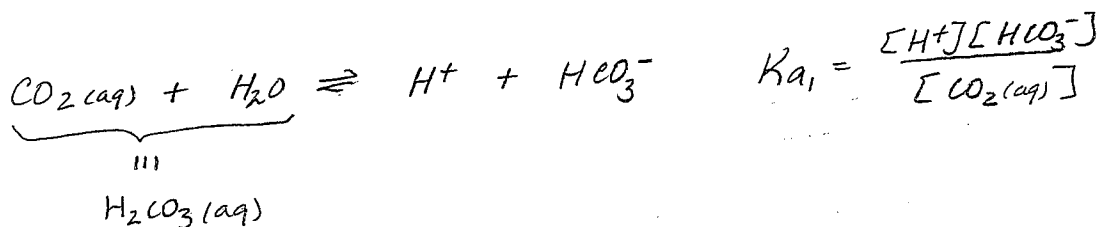 CO2(aq) + H2O ⇌ H+ + HCO3- Ka1 = [H+][HCO3-] / [CO2(aq)]
III
H2CO3(aq)